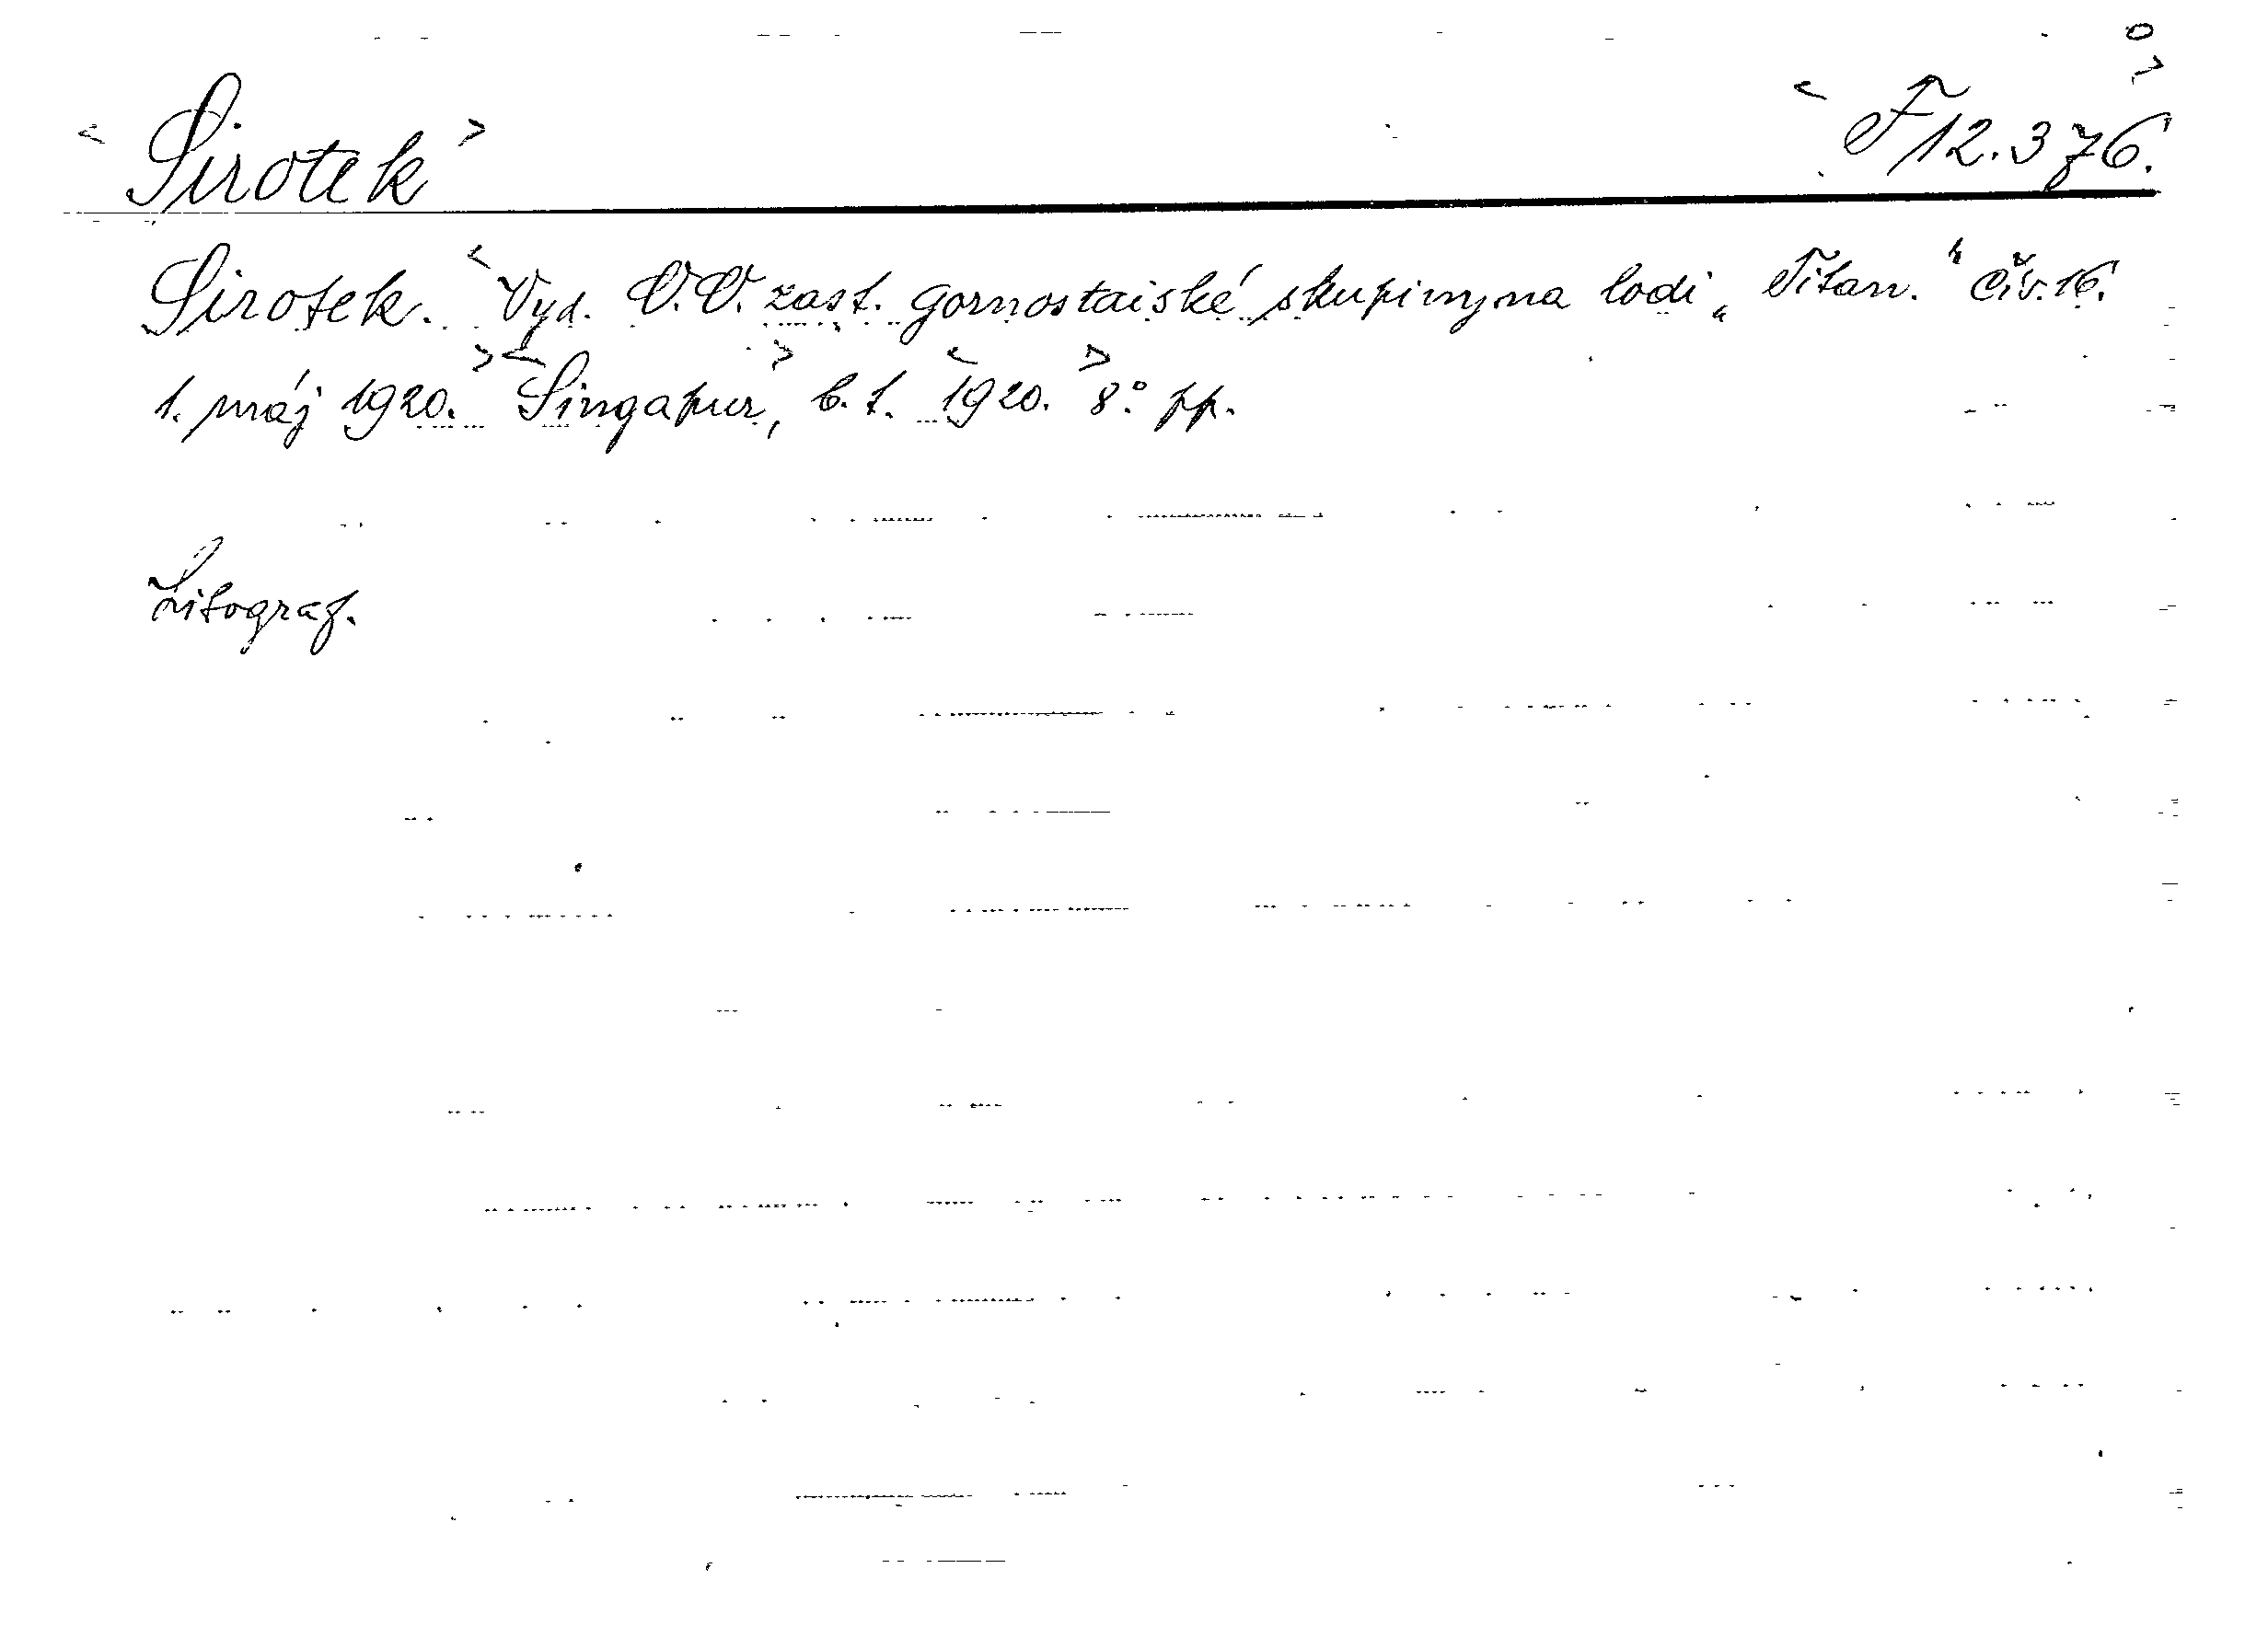 Sirotek F 12.376.
Sirotek. Vyd. V.V. zast. gornostaiské skupiny na lodi „Titan.“ Čís. 16.
1. máj 1920. Singapur, b. t. 1920. 8°. pp.
Litograf.